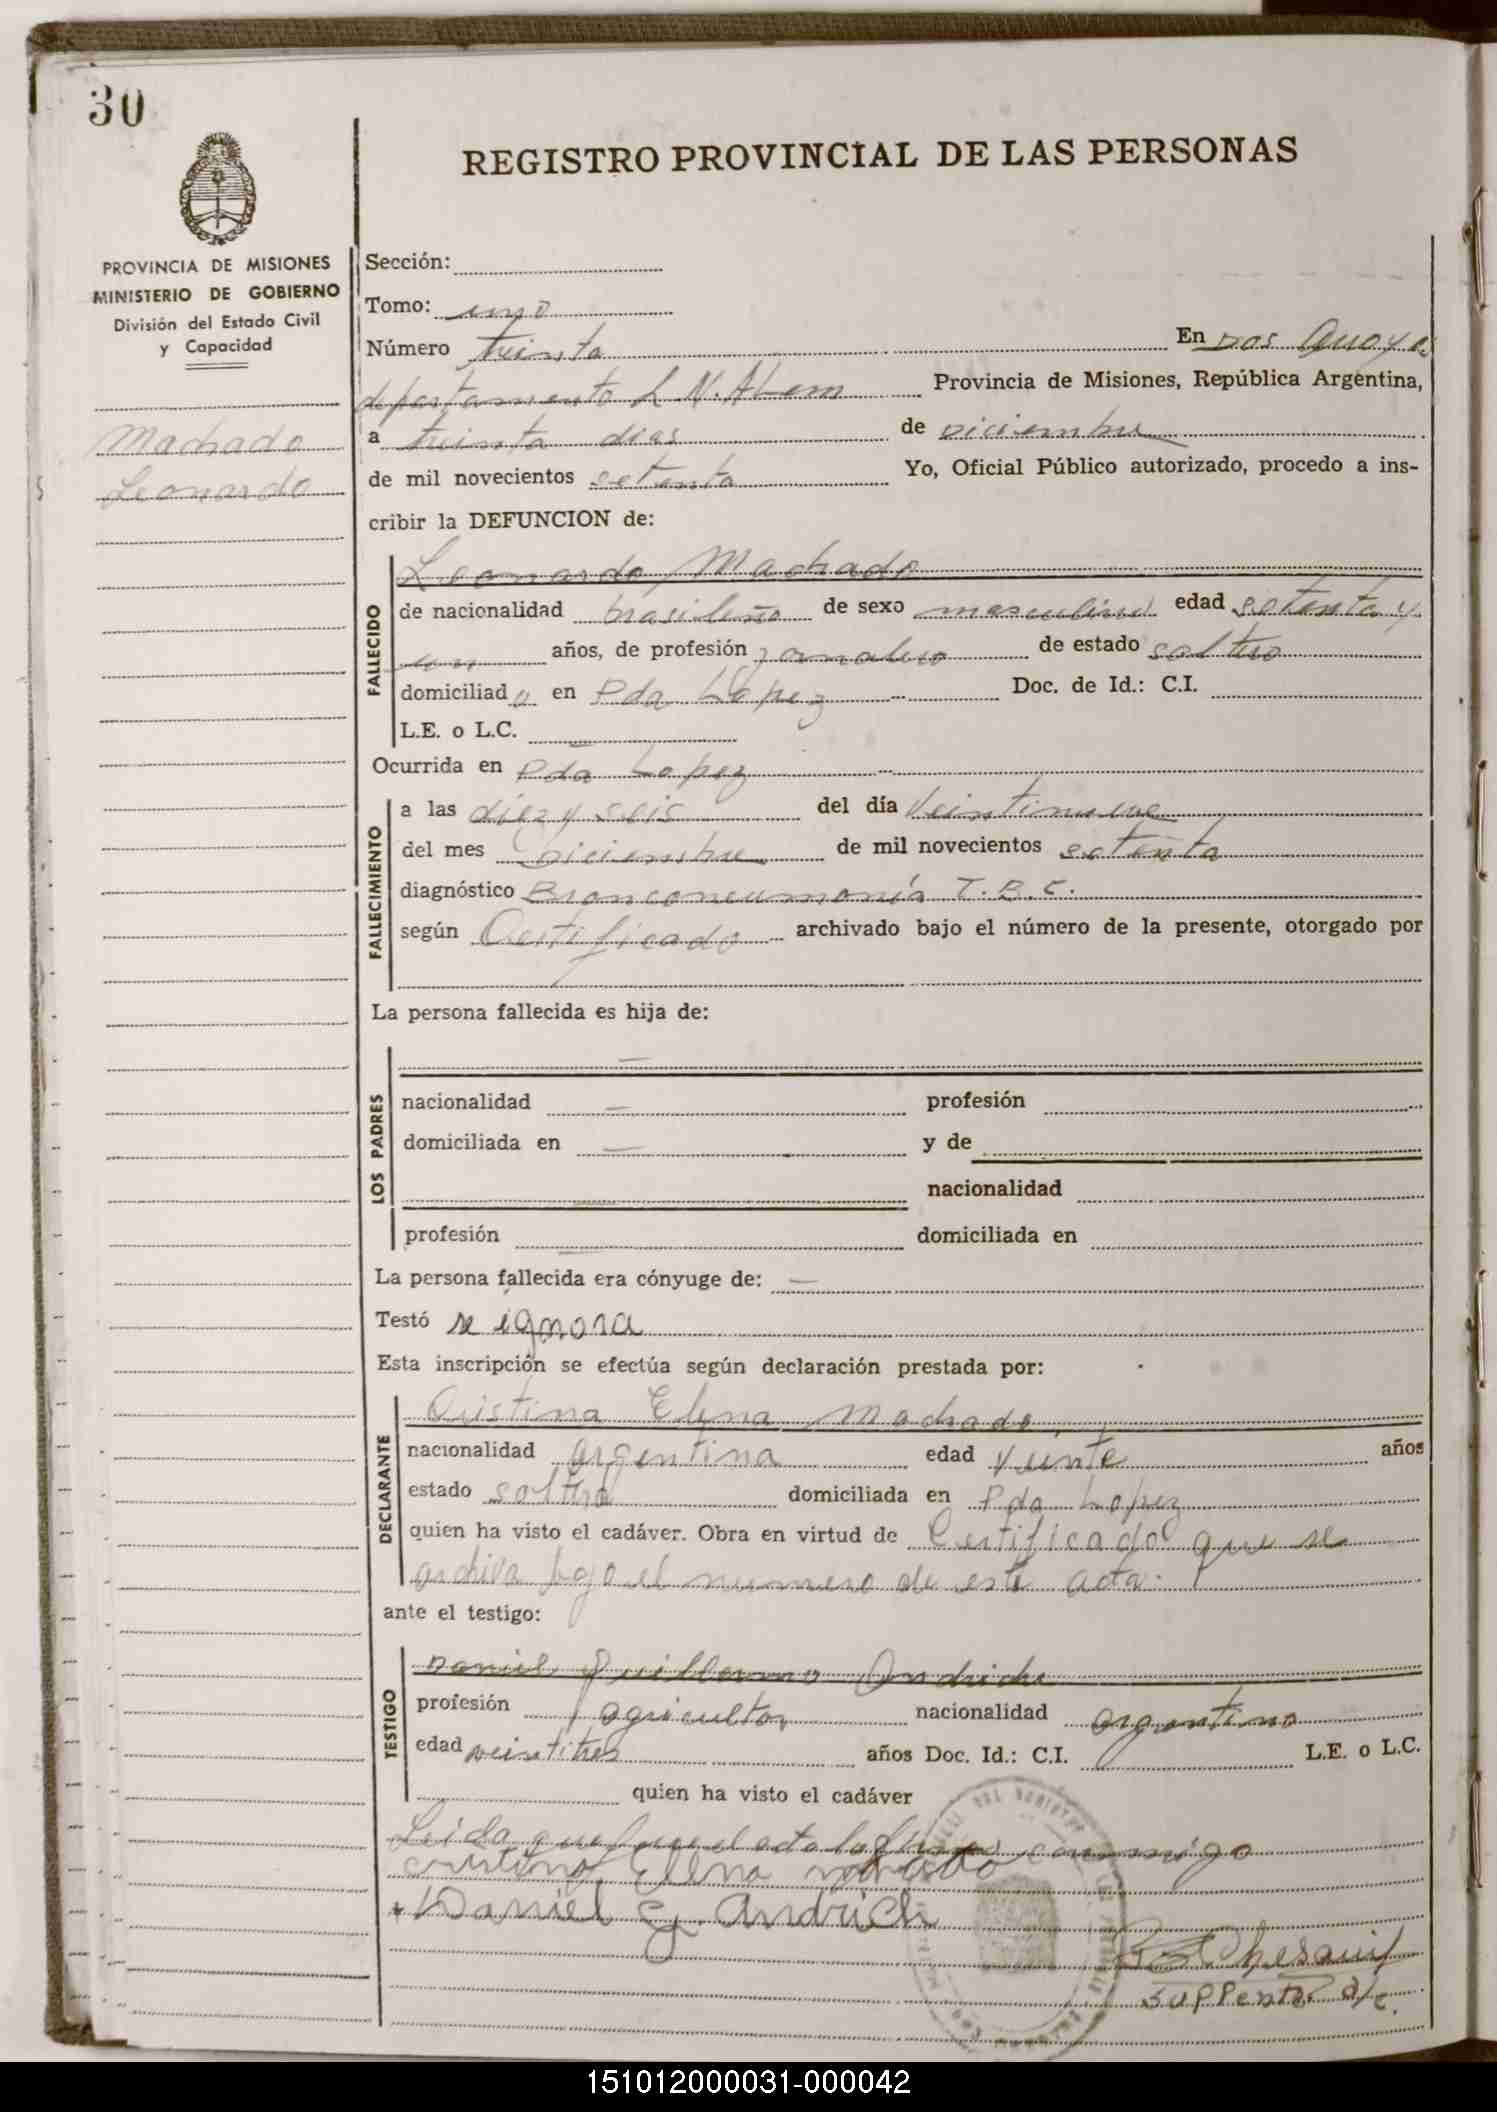 30
REGISTRO PROVINCIAL DE LAS PERSONAS
PROVINCIA DE MISIONES
MINISTERIO DE GOBIERNO
División del Estado Civil
y Capacidad
Machado
Leonardo
Sección:
Tomo: uno
Número treinta En Dos Arroyos
departamento L. N. Alem Provincia de Misiones, República Argentina,
a treinta dias de Diciembre
de mil novecientos setenta Yo, Oficial Público autorizado, procedo a ins-
cribir la DEFUNCION de:
FALLECIDO
Leonardo Machado
de nacionalidad brasileño de sexo masculino edad setenta y
un años, de profesión jornalero de estado soltero
domiciliado en Pda Lopez Doc. de Id.: C.I.
L.E. o L.C.
Ocurrida en Pda Lopez
FALLECIMIENTO
a las diez y seis del día Veintinueve
del mes Diciembre de mil novecientos setenta
diagnóstico Bronconeumonía T.B.C.
según Certificado archivado bajo el número de la presente, otorgado por
La persona fallecida es hija de:
LOS PADRES
nacionalidad — profesión
domiciliada en — y de
nacionalidad
profesión — domiciliada en
La persona fallecida era cónyuge de: —
Testó se ignora
Esta inscripción se efectúa según declaración prestada por:
DECLARANTE
Cristina Elena Machado
nacionalidad argentina edad Veinte años
estado soltera domiciliada en Pda Lopez
quien ha visto el cadáver. Obra en virtud de Certificado que se
archiva bajo el numero de este acta.
ante el testigo:
TESTIGO
Daniel Guillermo Andrich
profesión agricultor nacionalidad argentino
edad veintitres años Doc. Id.: C.I. L.E. o L.C.
quien ha visto el cadáver
Leida que fue el acta la firman conmigo
Cristina Elena Machado
Daniel G. Andrich
Suplente a/c.
151012000031-000042